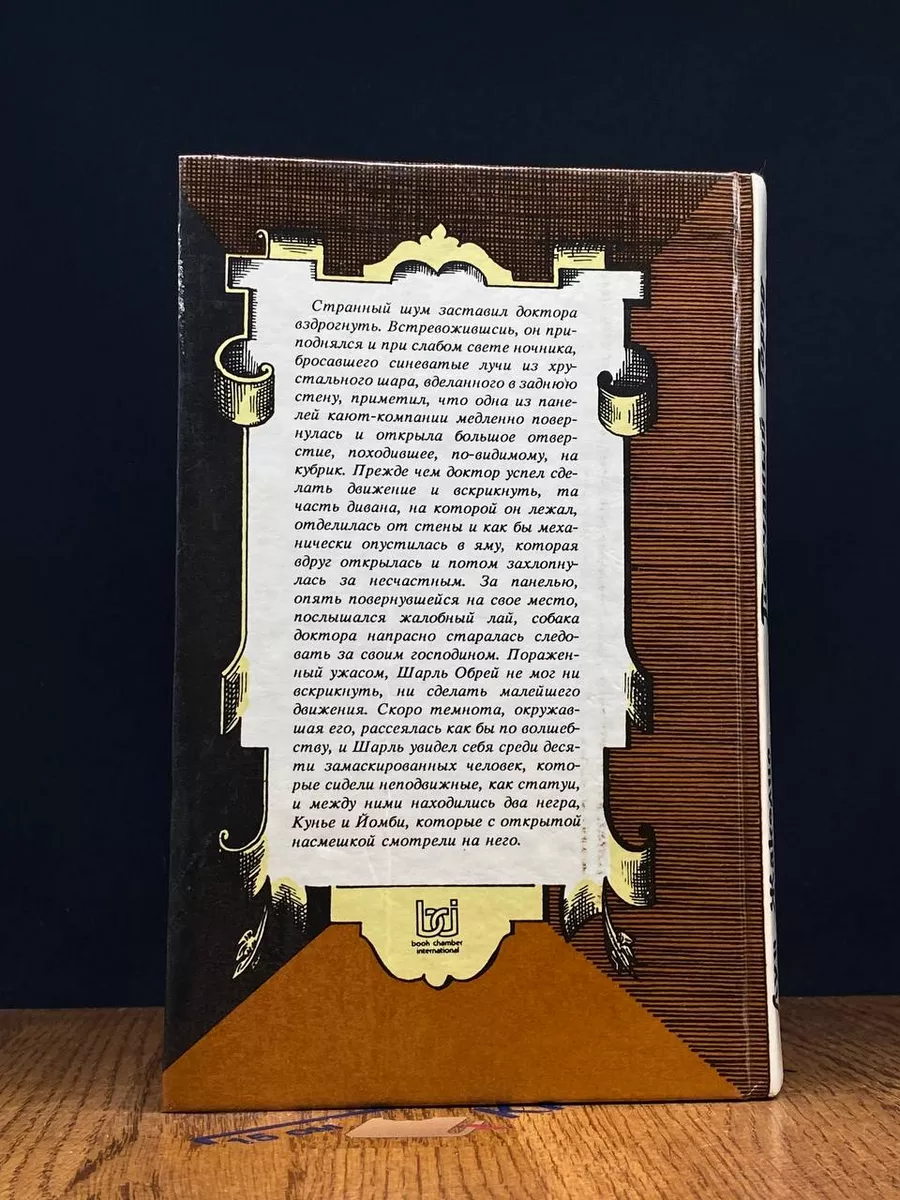 Странный шум заставил доктора
вздрогнуть. Встревожившись, он при-
поднялся и при слабом свете ночника,
бросавшего синеватые лучи из хру-
стального шара, вделанного в заднюю
стену, приметил, что одна из пане-
лей кают-компании медленно повер-
нулась и открыла большое отвер-
стие, походившее, по-видимому, на
кубрик. Прежде чем доктор успел сде-
лать движение и вскрикнуть, та
часть дивана, на которой он лежал,
отделилась от стены и как бы меха-
нически опустилась в яму, которая
вдруг открылась и потом захлопну-
лась за несчастным. За панелью,
опять повернувшейся на свое место,
послышался жалобный лай, собака
доктора напрасно старалась следо-
вать за своим господином. Поражен-
ный ужасом, Шарль Обрей не мог ни
вскрикнуть, ни сделать малейшего
движения. Скоро темнота, окружав-
шая его, рассеялась как бы по волшеб-
ству, и Шарль увидел себя среди деся-
ти замаскированных человек, кото-
рые сидели неподвижные, как статуи,
и между ними находились два негра,
Кунье и Йомби, которые с открытой
насмешкой смотрели на него.
bci
book chamber
international